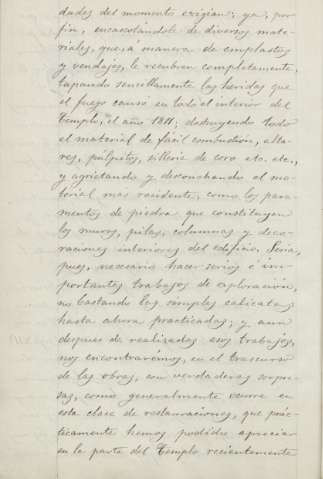 dades del momento exigian; ya, por
fin, encascotándole de diversos mate-
riales, que, a manera de emplastos
y vendajes, le recubren completamente,
tapando sencillamente las heridas que
el fuego causó en todo el interior del
Templo, el año 1811; destruyendo todo
el material de fácil combustión, alta-
res, púlpitos, sillería de coro etc. etc.,
y agrietando y desconchando el ma-
terial más resistente, como los para-
mentos de piedra que constituyen
los muros, pilas, columnas y deco-
raciones interiores del edificio. Sería,
pues, necesario hacer serios é im-
portantes trabajos de exploración,
no bastando las simples calicatas
hasta ahora practicadas; y aun
despues de realizados esos trabajos,
nos encontraremos, en el trascurso
de las obras, con verdaderas sorpre-
sas, como generalmente ocurre en
esta clase de restauraciones, que prác-
ticamente hemos podido apreciar
en la parte del Templo recientemente